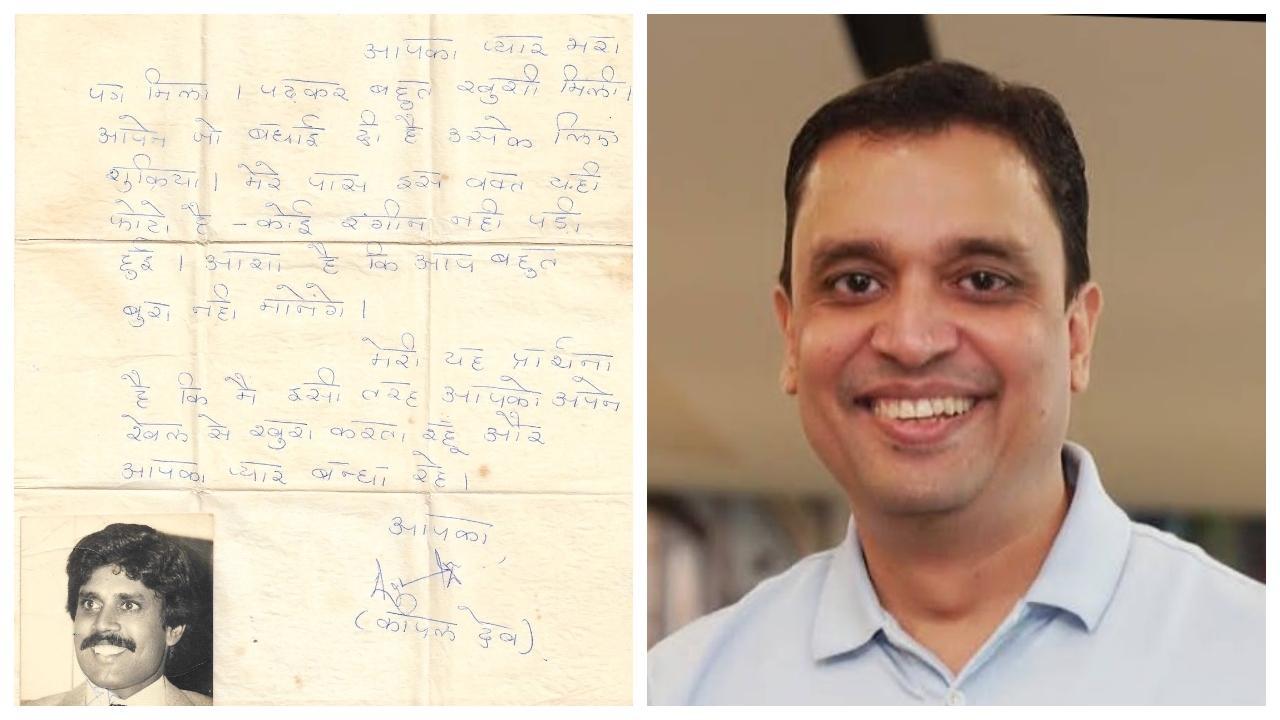 आपका प्यार भरा
पत्र मिला । पढ़कर बहुत खुशी मिली।
आपने जो बधाई दी है उसके लिए
शुक्रिया । मेरे पास इस वक्त यही
फोटो है - कोई रंगीन नही पड़ी
हुई । आशा है कि आप बहुत
बुरा नही मानेंगे ।
मेरी यह प्रार्थना
है कि मै इसी तरह आपको अपने
खेल से खुश करता रहू और
आपका प्यार बन्धा रहे ।
आपका
(कपिल देव)